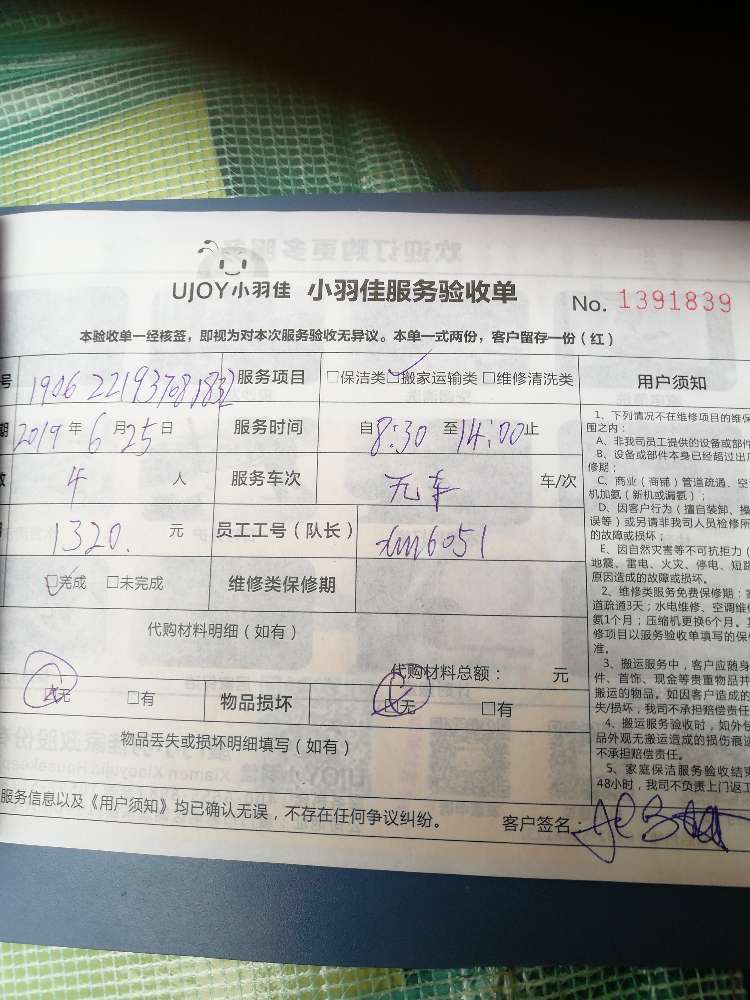 UJOY小羽佳 小羽佳服务验收单 No. 1391839
本验收单一经核签，即视为对本次服务验收无异议。本单一式两份，客户留存一份（红）
号 190622193768183 服务项目 □保洁类 □搬家运输类 □维修清洗类
期 2019年6月25日 服务时间 自8:30至14:00止
数 4 人 服务车次 无车 车/次
1320. 元 员工工号（队长） xm6051
□完成 □未完成 维修类保修期
代购材料明细（如有）
代购材料总额： 元
□无 □有 物品损坏 □无 □有
物品丢失或损坏明细填写（如有）
服务信息以及《用户须知》均已确认无误，不存在任何争议纠纷。
客户签名：
用户须知
1、下列情况不在维修项目的维保
围之内：
A、非我司员工提供的设备或部件
B、设备或部件本身已经超过出厂
修期；
C、商业（商铺）管道疏通、空
机加氨（新机或漏氨）；
D、因客户行为（擅自装卸、操
误等）或另请非我司人员检修所
的故障或损坏；
E、因自然灾害等不可抗力（
地震、雷电、火灾、停电、短路
原因造成的故障或损坏。
2、维修类服务免费保修期：
道疏通3天；水电维修、空调维
氨1个月；压缩机更换6个月。
修项目以服务验收单填写的保
准。
3、搬运服务中，客户应随身
件、首饰、现金等贵重物品并
搬运的物品。如因客户造成的
失/损坏，我司不承担赔偿责任
4、搬运服务验收时，如外包
品外观无搬运造成的损伤痕迹
不承担赔偿责任。
5、家庭保洁服务验收结束
48小时，我司不负责上门返工